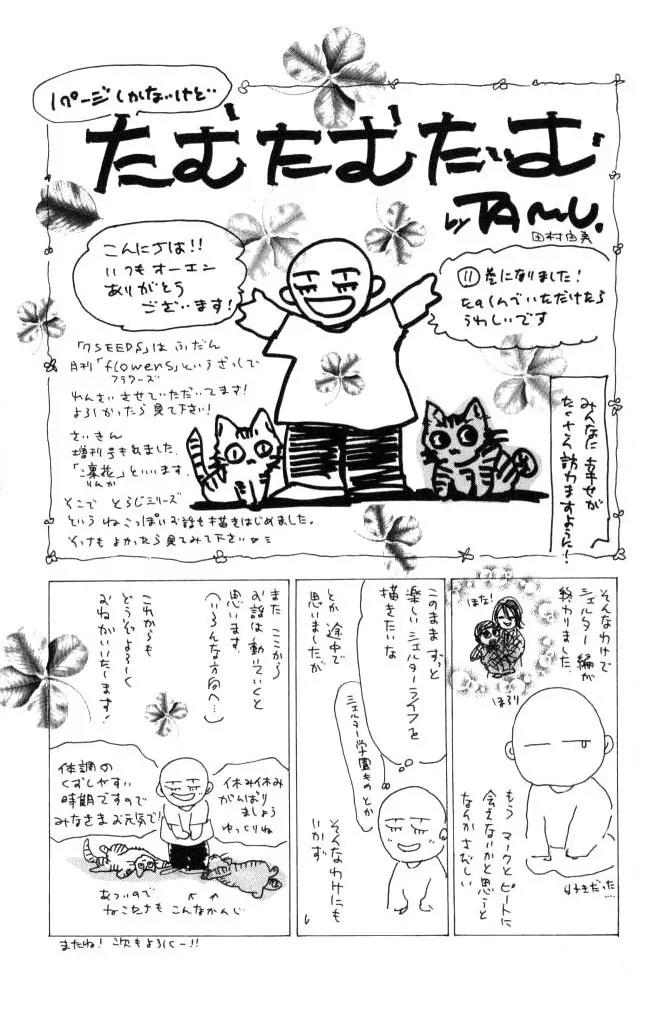 1ページしかないけど…
たむたむたいむ
by TAMU.
田村由美
こんにちは!!
いつもオーエン
ありがとう
ございます!
⑪巻になりました!
たのしんでいただけたら
うれしいです
「7SEEDS」はふだん
月刊「flowers」というざっしで
フラワーズ
れんさいさせていただいてます!
よろしかったら見て下さい!
さいきん
増刊号もでました。
「凜花」といいます。
りんか
そこで とらじシリーズ
という ねこっぽいお話も描きはじめました。
そっちもよかったら見てみて下さい
みんなに幸せが
たくさん訪れますように!
そんなわけで
シェルター編が
終わりました。
ほな!
ほろり
もう マークとピートに
会えないかと思うと
なんかさびしい
好きだった…
このままずっと
楽しいシェルターライフを
描きたいな
とか 途中で
思いましたが
シェルター学園ものとか
そんなわけにも
いかず
また ここから
お話は動いていくと
思います。
(いろんな方向へ…)
これからも
どうぞよろしく
おねがいいたします!
休み休み
がんばり
ましょう
ゆっくりね
体調の
くずしやすい
時期ですので
みなさまお元気で!
あついので
ねこたちも こんなかんじ
またね! 次もよろしくー!!